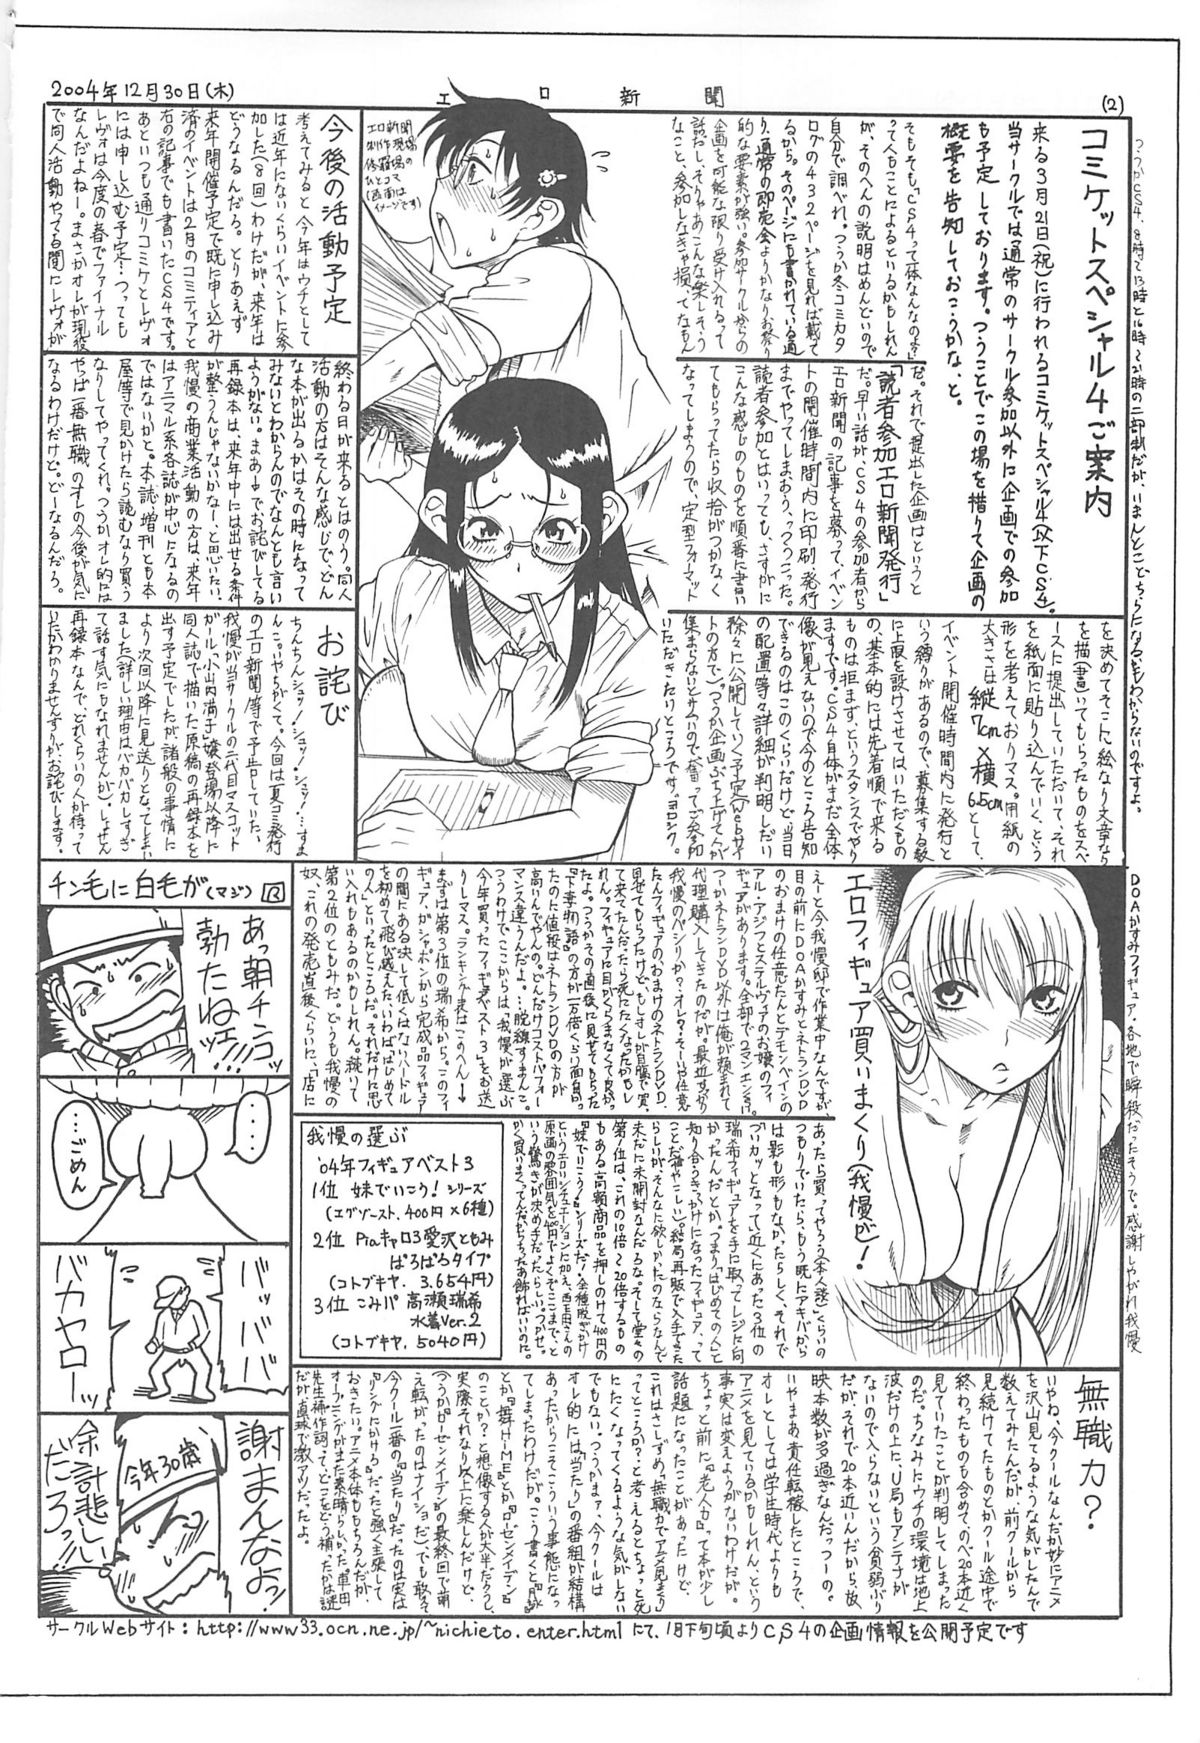 2004年12月30日(木)
エロ新聞
(2)
コミケットスペシャル4ご案内
来る3月21日(祝)に行われるコミケットスペシャル4(以下CS4)。
当サークルでは通常のサークル参加以外に企画での参加
も予定しております。つうことでこの場を借りて企画の
概要を告知しておこうかな、と。
そもそも「CS4って一体なんなのよ?」
って人もことによるといるかもしれん
が、そのへんの説明はめんどいので
自分で調べれ。つうか冬コミカタ
ログの432ページを見れば載って
るから。そのページにも書かれている通
り、通常の即売会よりかなりお祭り
的な要素が強い。参加サークルからの
企画を可能な限り受け入れるって
話だし、そりゃあこんな楽しそう
なこと、参加しなきゃ損ってなもん
だ。それで提出した企画はというと
「読者参加エロ新聞発行」
だ。早い話が、CS4の参加者から
エロ新聞の記事を募って、イベン
トの開催時間内に印刷、発行
までやってしまおう、つうこった。
読者参加とはいっても、さすがに
こんな感じのものを順番に書い
てもらってたら収拾がつかなく
なってしまうので、定型フォーマット
を決めてそこに絵なり文章なり
を描(書)いてもらったものをスペ
ースに提出していただいて、それ
を紙面に貼り込んでいく、という
形を考えておりマス。用紙の
大きさは 縦7cm×横6.5cm として、
イベント開催時間内に発行と
いう縛りがあるので、募集する数
に上限を設けさせてはいただくもの
の、基本的には先着順で来る
ものは拒まず、というスタンスでやり
ます。CS4自体がまだ全体
像が見えないので今のところ告知
できるのはこのくらいだけど、当日
の配置等々詳細が判明しだい
徐々に公開していく予定(Webサイ
トの方で)。つうか企画ぶち上げて人が
集まらないとサムいので、奮ってご参加
いただきたいところでサ。ヨロシク。
エロ新聞
制作現場
修羅場の
ひとコマ
(画面は
イメージです)
今後の活動予定
考えてみると今年はウチとして
は近年にないくらいイベントに参
加した(8回)わけだが、来年は
どうなるんだろ。とりあえず
来年開催予定で既に申し込み
済のイベントは2月のコミティアと
右の記事でも書いたCS4です。
あといつも通りコミケとレヴォ
には申し込む予定…つっても
レヴォは今度の春でファイナル
なんだよねー。まさかオレが現役
で同人活動やってる間にレヴォが
終わる日が来るとはのう。同人
活動の方はそんな感じで、どん
な本が出るかはその時になって
みないとわからんのでなんとも言い
ようがない。まあ→でお詫びしてる
再録本は、来年中には出せる条件
が整うんじゃないかなー、と思いたい。
我慢の商業活動の方は、来年
はアニマル系各誌が中心になるの
ではないかと。本誌、増刊とも本
屋等で見かけたら読むなり買う
なりしてやってくれ。つうかオレ的には
やっぱ一番無職のオレの今後が気に
なるわけだけど。どーなるんだろ。
お詫び
ちんちんシュッ!シュッ!シュッ!…すま
ん、こいやちがくて。今回は夏コミ発行
のエロ新聞等で予告していた、
我慢が当サークルの二代目マスコット
ガール、小山内満子嬢登場以降に
同人誌で描いた原稿の再録本を
出す予定でしたが諸般の事情に
より次回以降に見送りとなってしまい
ました(詳しい理由はバカバカしすぎ
て話す気にもなれませんが)。しょせん
再録本なんで、どれくらいの人が待って
いたかわかりませんすが、お詫びします。
エロフィギュア買いまくり(我慢が)!
えーと今我慢邸で作業中なんですが、
目の前にDOAかすみとネトランDVD
のおまけの仕意たんとデモンベインの
アル・アジフとステルヴィアのお嬢のフィ
ギュアがあります。全部で2マンエン≒?
つーかネトランDVD以外は俺が頼まれて
代理購入してきたのだが。最近すっかり
我慢の
「下妻物語」の方が一万倍くらい面白
今年買ったフィギュアベスト3」をお送
りしマス。ランキング表はこのへん→
まずは第3位の瑞希から。このフィ
ギュア、ガシャポンから完成品フィギュア
の間にある決して低くはないハードル
を初めて飛び越えた、いわばはじめて
の人」といったところだ。それだけに思
い入れもあるのかもしれん。続いて
第2位のともみだ。どうも我慢の
奴、これの発売直後くらいに、「店に
あったら買ってやろう(本人談)くらいの
つもりでいたら、もう既にアキバから
は影も形もなかったらしく、それで
カッとなって近くにあった3位の
瑞希フィギュアを手に取ってレジに向
かったんだとか。つまり「はじめての人」と
知り合うきっかけになったフィギュア、って
ことだ(ややこしい)。結局再販で入手できた
らしいが、そんなに欲しかったのならなんで
未だに未開封なんだろな。そして堂々の
第1位は、これの10倍〜20倍するもの
もある高額商品を押しのけて400円の
「妹でいこう!」シリーズだ!
我慢の選ぶ
'04年フィギュアベスト3
1位 妹でいこう!シリーズ
(エグゾースト、400円×6種)
2位 Piaキャロ3愛沢ともみ
ぱろぱろタイプ
(コトブキヤ、3,654円)
3位 こみパ 高瀬瑞希
水着Ver.2
(コトブキヤ、5040円)
無職力?
いやね、今クールなんだか妙にアニメ
を沢山見てるような気がしたんで
数えてみたんだが、前クールから
見続けてたものとかクール途中で
終わったものも含めてのべ20本近く
見ていたことが判明してしまった
のだ。ちなみにウチの環境は地上
波だけの上に、U局もアンテナが
ないので入らないという貧弱ぶり
だが、それで20本近いんだから、放
映本数が多過ぎなんだっつーの。
いやまあ責任転嫁したところで、
オレとしては学生時代よりも
アニメを見ているかもしれん、という
事実は変えようがないわけだが。
ちょっと前に「老人力」って本が少し
話題になったことがあったけど、
これはさしずめ「無職力でアニメ見まくり」
ってところか?と考えるとちょっと死
にたくなってくるような気がしない
でもない。つうかまァ、今クールは
オレ的には「当たり」の番組が結構
あったからこそこういう事態になっ
てしまったわけだが。こう書くと「咏
とか「舞-HiME」とか「ローゼンメイデン」
のことか?と想像する人が大半だろうし、
実際それなり以上に楽しんだけど、
(つうか「ローゼンメイデン」の最終回で萌
え転がったのはナイショだ)、でも敢えて
今クール一番の「当たり」だったのは実は
「リングにかけろ」だったと強く主張して
おきたい。アニメ本体ももちろんだが、
オープニングがまた素晴らしかった。車田
先生補作詞って、どこをどう補ったかは謎
だが、直球で激アツだったよ。
チン毛に白毛が(マジ)
あっ朝チンコ
勃たねェ!!!!
…。
…ごめん
バッババ
バカヤローッ
今年30歳
謝まんなよッ
余計悲しい
だろっ
つうかCS4、8時〜13時と16時〜21時の二部制だが、いまんとこどちらになるもかもわからないのですよ。
DOAかすみフィギュア、各地で瞬殺だったそうで。感謝しやがれ我慢
サークルWebサイト:http://www33.ocn.ne.jp/~nichieto.enter.html にて、1月下旬頃よりCS4の企画情報を公開予定です